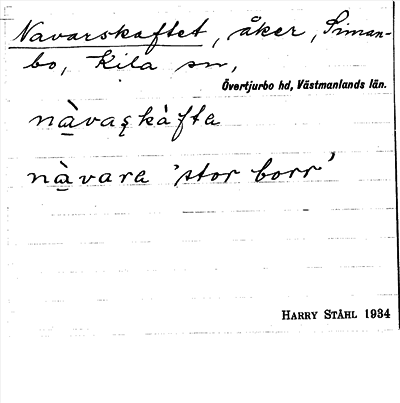 Navarskaftet, åker, Siman-
bo, Kila sn,
Övertjurbo hd, Västmanlands län.
nà̱vaʂkàfta
nà̱vara 'stor borr'
HARRY STÅHL 1934